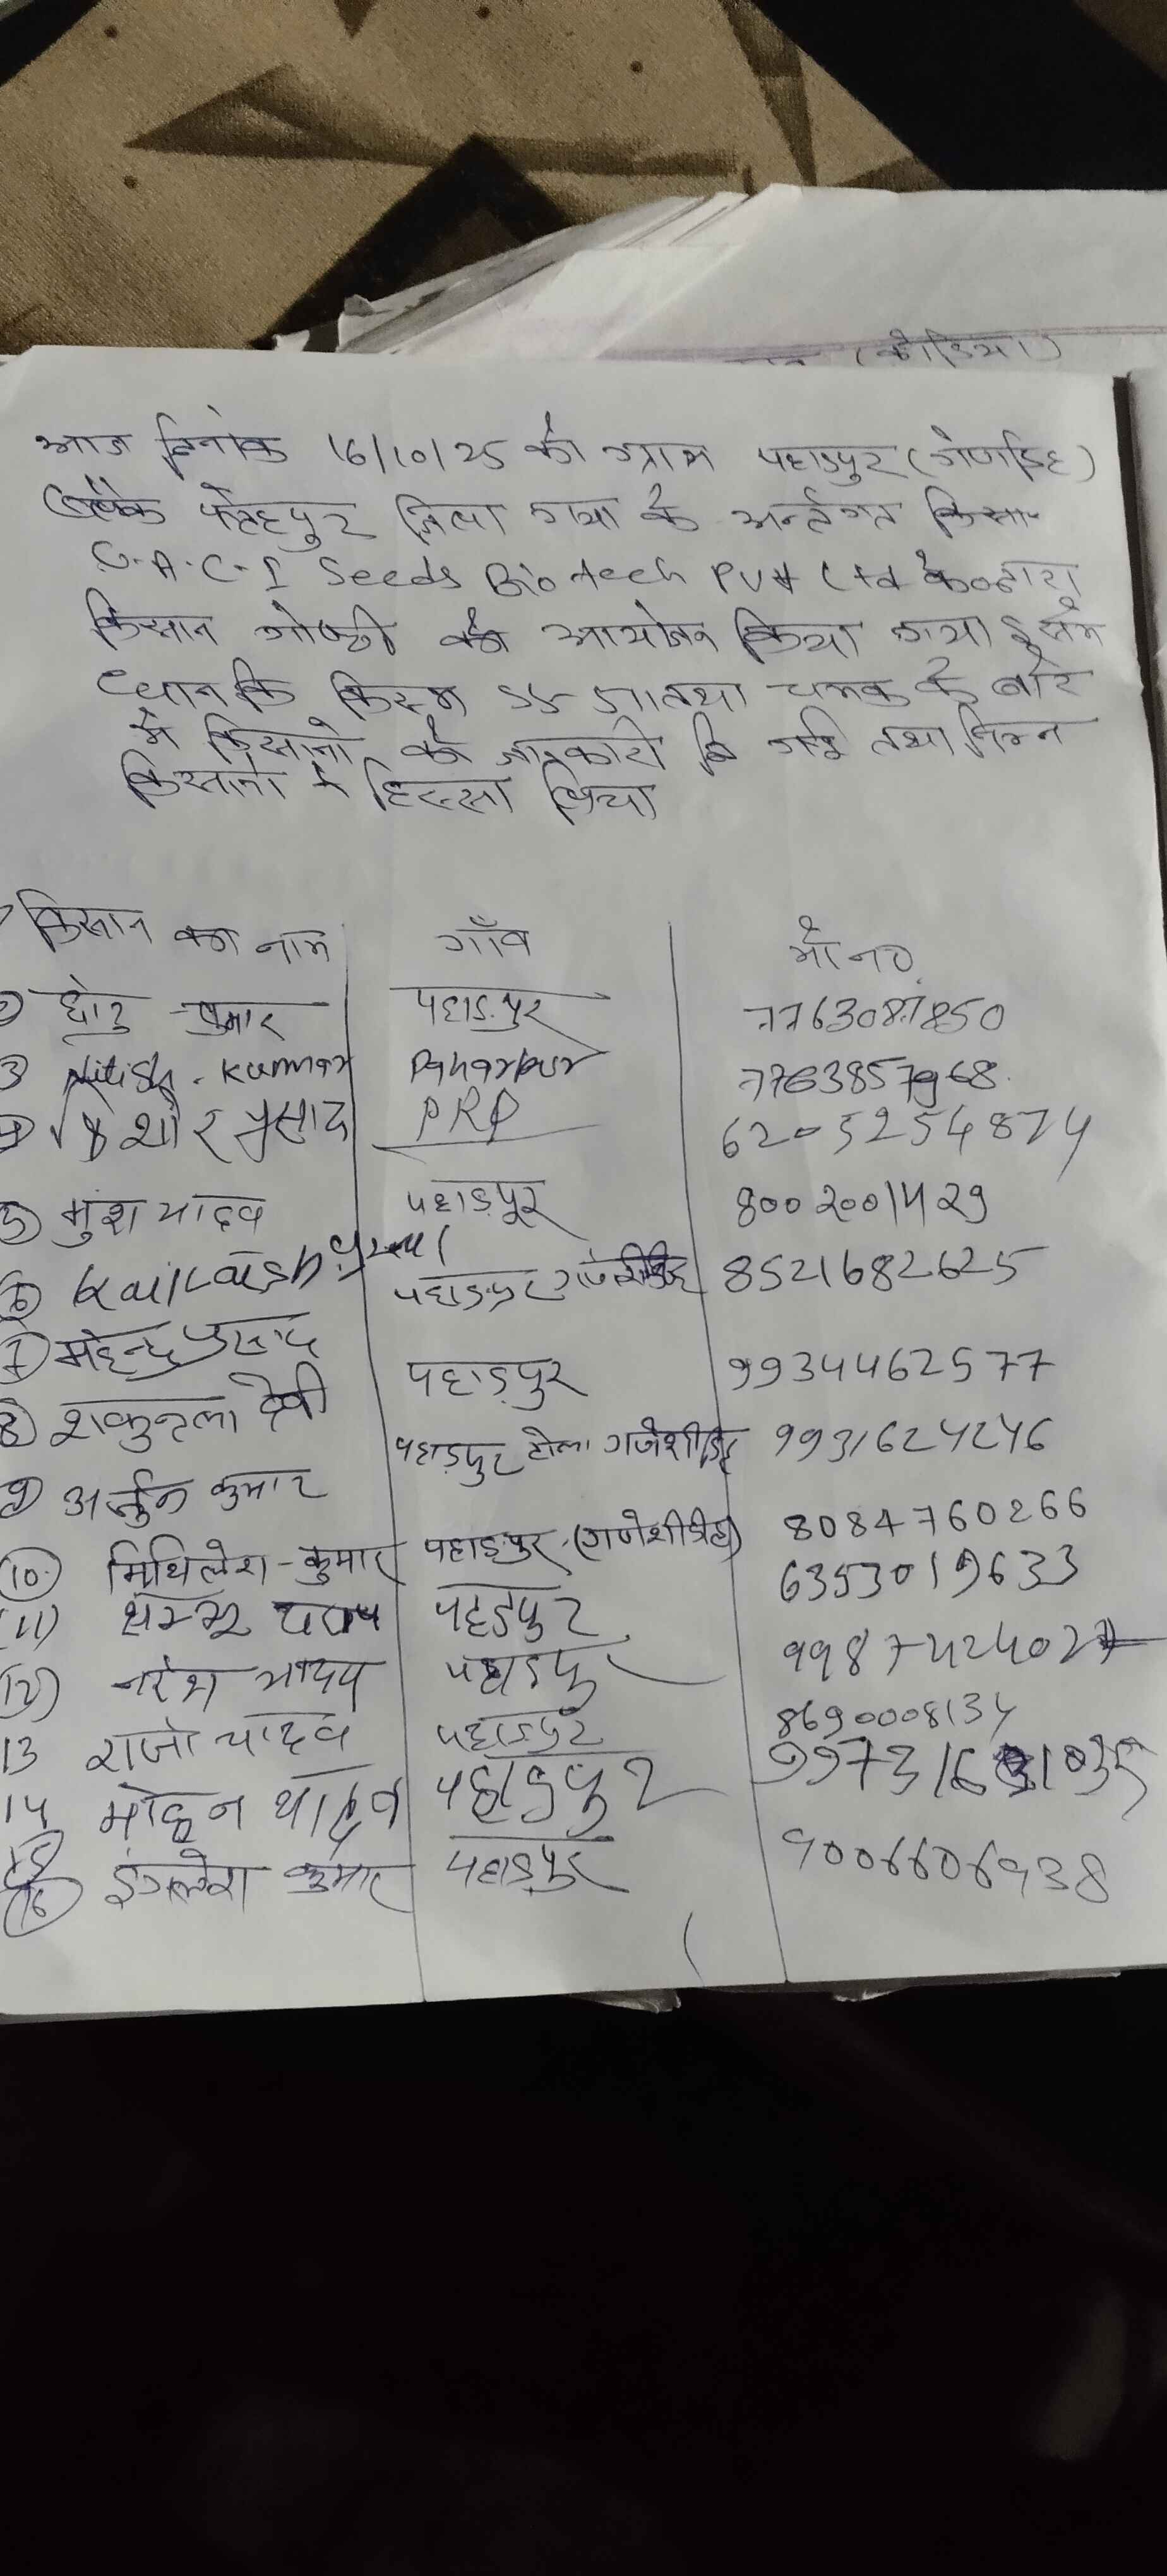 (कोडिया)
आज दिनांक 16/10/25 को ग्राम पहाडपुर (गणेशडिह)
फतेहपुर जिला गया के अर्न्तगत
C.A.C.I Seeds Biotech Pvt Ltd के द्वारा
किसान गोष्ठी को आयोजन किया गया इसमे
धान कि किस्म तथा चमक के बारे
मे किसानो को जानकारी दि गई तथा निम्न
किसानो ने हिस्सा लिया
किसान का नाम गाँव मो न०
छोटु कुमार पहाड़पुर 7763087850
3 Nitish. Kumar Paharpur 7763857968
किशोर प्रसाद PRP 6205254874
5 मुंशी यादव पहाड़पूर 8002001429
6 Kailaish पहाड़पुर गणेशीडिह 8521682625
7 महेन्द्र प्रसाद
पहाड़पुर 9934462577
8 शकुन्तला देवी
पहाड़पुर टोला गणेशीडिह 9931624246
9 अर्जुन कुमार
10. मिथिलेश-कुमार पहाड़पुर-(गणेशीडीह) 8084760266
6353019633
(11) पहडपुर
(12) नरेश यादव पहाडपु 9987424027
13 राजो यादव पहाडपुर 8690008134
14 मोहन यादव पहाडपुर
15
16 इंगलेश कुमार पहाड़पुर 9006606938